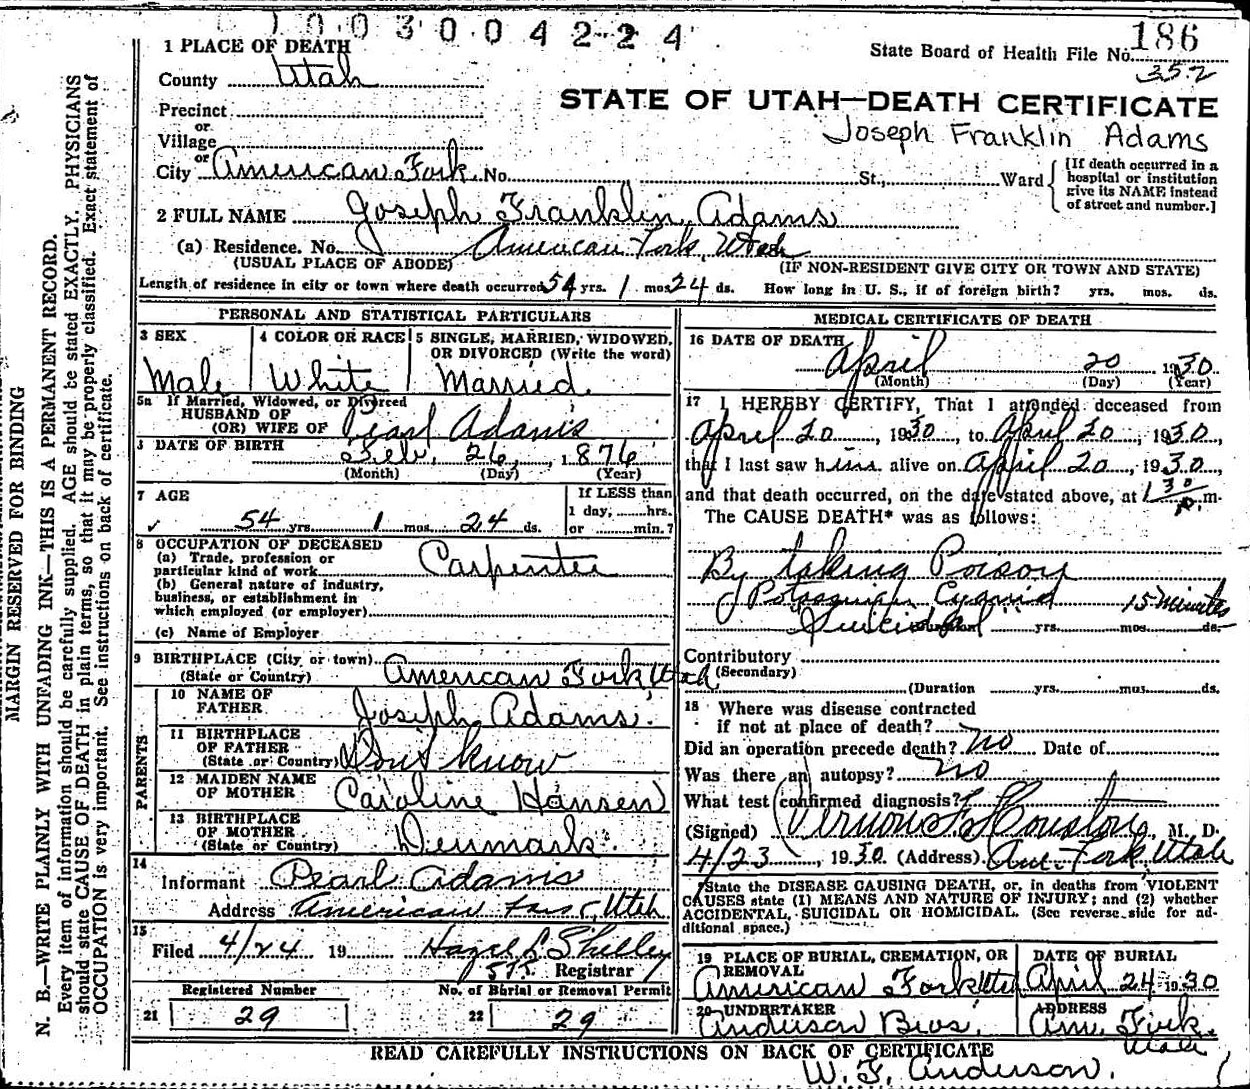 1003004224
186
State Board of Health File No.
352
1 PLACE OF DEATH
County Utah
STATE OF UTAH—DEATH CERTIFICATE
Joseph Franklin Adams
Precinct
or
Village
or
City American Fork No. St., Ward
[If death occurred in a
hospital or institution
give its NAME instead
of street and number.]
2 FULL NAME Joseph Franklin Adams
(a) Residence. No. American Fork, Utah
(USUAL PLACE OF ABODE) (IF NON-RESIDENT GIVE CITY OR TOWN AND STATE)
Length of residence in city or town where death occurred 54 yrs. 1 mos. 24 ds. How long in U. S., if of foreign birth? yrs. mos. ds.
PERSONAL AND STATISTICAL PARTICULARS
3 SEX 4 COLOR OR RACE 5 SINGLE, MARRIED, WIDOWED,
OR DIVORCED (Write the word)
Male White Married
5a If Married, Widowed, or Divorced
HUSBAND OF
(OR) WIFE OF Pearl Adams
DATE OF BIRTH Feb. 26, 1876
(Month) (Day) (Year)
7 AGE If LESS than
1 day, hrs.
54 yrs. 1 mos. 24 ds. or min.?
8 OCCUPATION OF DECEASED
(a) Trade, profession or
particular kind of work Carpenter
(b) General nature of industry,
business, or establishment in
which employed (or employer)
(c) Name of Employer
9 BIRTHPLACE (City or town)
(State or Country) American Fork Utah
PARENTS
10 NAME OF
FATHER Joseph Adams.
11 BIRTHPLACE
OF FATHER
(State or Country) Don't know
12 MAIDEN NAME
OF MOTHER Caroline Hansen
13 BIRTHPLACE
OF MOTHER
(State or Country) Denmark.
14
Informant Pearl Adams
Address American Fork, Utah
15
Filed 4/24 19 Hazel L Shelley
Registrar
Registered Number No. of Burial or Removal Permit
21 29 22 29
MEDICAL CERTIFICATE OF DEATH
16 DATE OF DEATH
April 20 1930
(Month) (Day) (Year)
17 I HEREBY CERTIFY, That I attended deceased from
April 20, 1930, to April 20, 1930,
that I last saw him alive on April 20, 1930,
and that death occurred, on the date stated above, at 1 30 p. m.
The CAUSE DEATH* was as follows:
By taking Poison
Potassium Cyanid 15 minutes
Suicidal yrs. mos. ds.
Contributory
(Secondary)
(Duration yrs. mos. ds.
18 Where was disease contracted
if not at place of death?
Did an operation precede death? No Date of
Was there an autopsy? No
What test confirmed diagnosis?
(Signed) Vernon F Houston, M. D.
4/23, 1930 (Address) Am. Fork, Utah
State the DISEASE CAUSING DEATH, or, in deaths from VIOLENT
CAUSES state (1) MEANS AND NATURE OF INJURY; and (2) whether
ACCIDENTAL, SUICIDAL OR HOMICIDAL. (See reverse side for ad-
ditional space.)
19 PLACE OF BURIAL, CREMATION, OR
REMOVAL
American Fork Utah
DATE OF BURIAL
April 24 1930
20 UNDERTAKER
Anderson Bros.
ADDRESS
Am. Fork.
Utah
READ CAREFULLY INSTRUCTIONS ON BACK OF CERTIFICATE
W. F. Anderson.
MARGIN RESERVED FOR BINDING
N. B.—WRITE PLAINLY WITH UNFADING INK—THIS IS A PERMANENT RECORD.
Every item of information should be carefully supplied. AGE should be stated EXACTLY. PHYSICIANS
should state CAUSE OF DEATH in plain terms, so that it may be properly classified. Exact statement of
OCCUPATION is very important. See instructions on back of certificate.